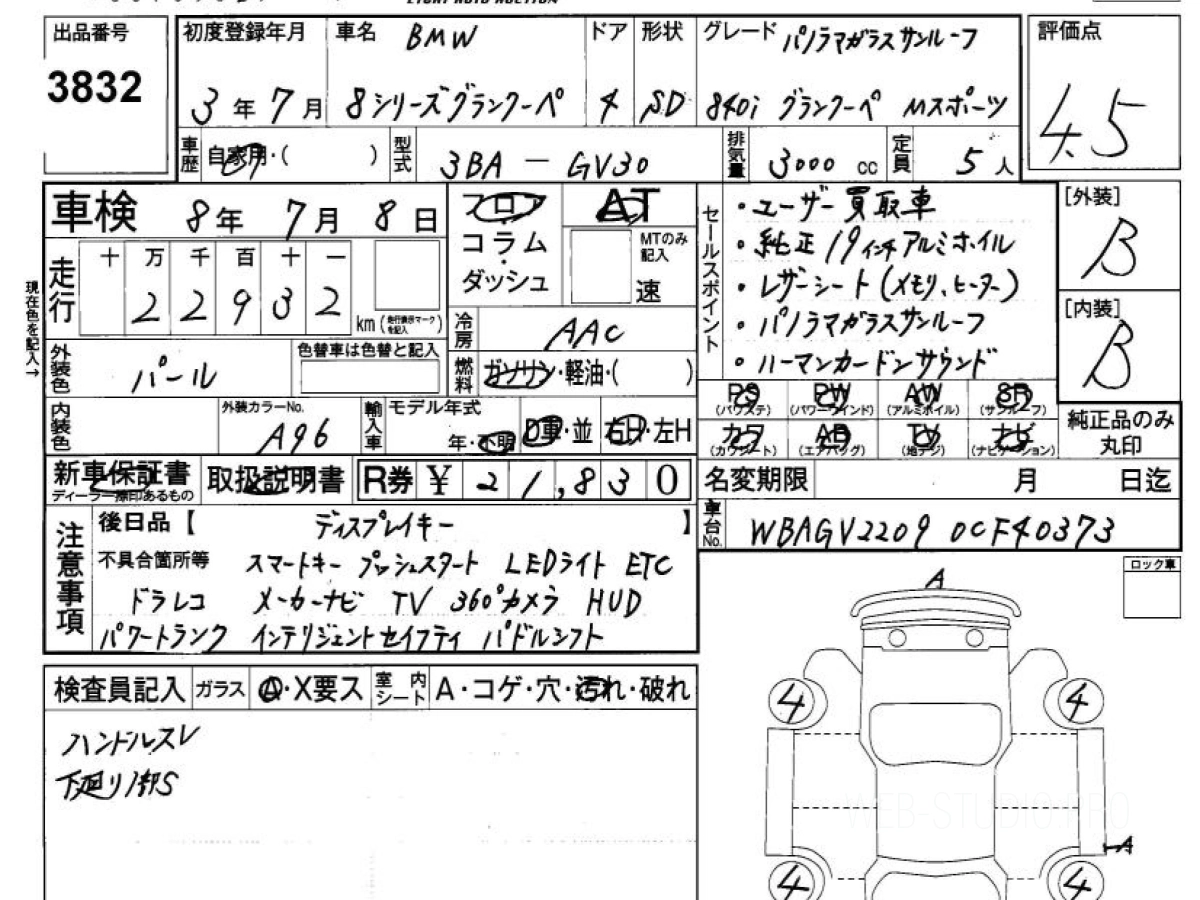 出品番号 3832
初度登録年月 3年7月
車名 BMW 8シリーズグランクーペ
ドア 4
形状 SD
グレード パノラマガラスサンルーフ
840i グランクーペ Mスポーツ
評価点 4.5
車歴 自家用・( )
型式 3BA-GV30
排気量 3000 cc
定員 5人
車検 8年7月8日
フロア
コラム
・
ダッシュ
AT
MTのみ記入
速
走行 十 万 千 百 十 一
2 2 9 3 2 km (走行表示マークを記入)
現在色を記入→
外装色 パール
色替車は色替と記入
冷房 AAC
燃料 ガソリン・軽油・( )
内装色
外装カラーNo. A96
輸入車 モデル年式 年・不明
D車・並 右H・左H
セールスポイント
・ユーザー買取車
・純正19インチアルミホイル
・レザーシート(メモリ、ヒーター)
・パノラマガラスサンルーフ
・ハーマンカードンサウンド
[外装] B
[内装] B
PS (パワステ) PW (パワーウインド) AW (アルミホイル) SR (サンルーフ)
カワ (カワシート) AB (エアバッグ) TV (地デジ) ナビ (ナビゲーション)
純正品のみ丸印
新車保証書
ディーラー捺印あるもの
取扱説明書
R券 ¥ 21,830
名変期限 月 日迄
車台No. WBAGV2209 0CF40373
注意事項
後日品【 ディスプレイキー 】
不具合箇所等 スマートキー プッシュスタート LEDライト ETC
ドラレコ メーカーナビ TV 360°カメラ HUD
パワートランク インテリジェントセイフティ パドルシフト
ロック車
検査員記入 ガラス A・X要ス 室内シート A・コゲ・穴・汚れ・破れ
ハンドルスレ
下廻り1部S
A
4 4
A
4 4
WEB-STUDIO.PRO